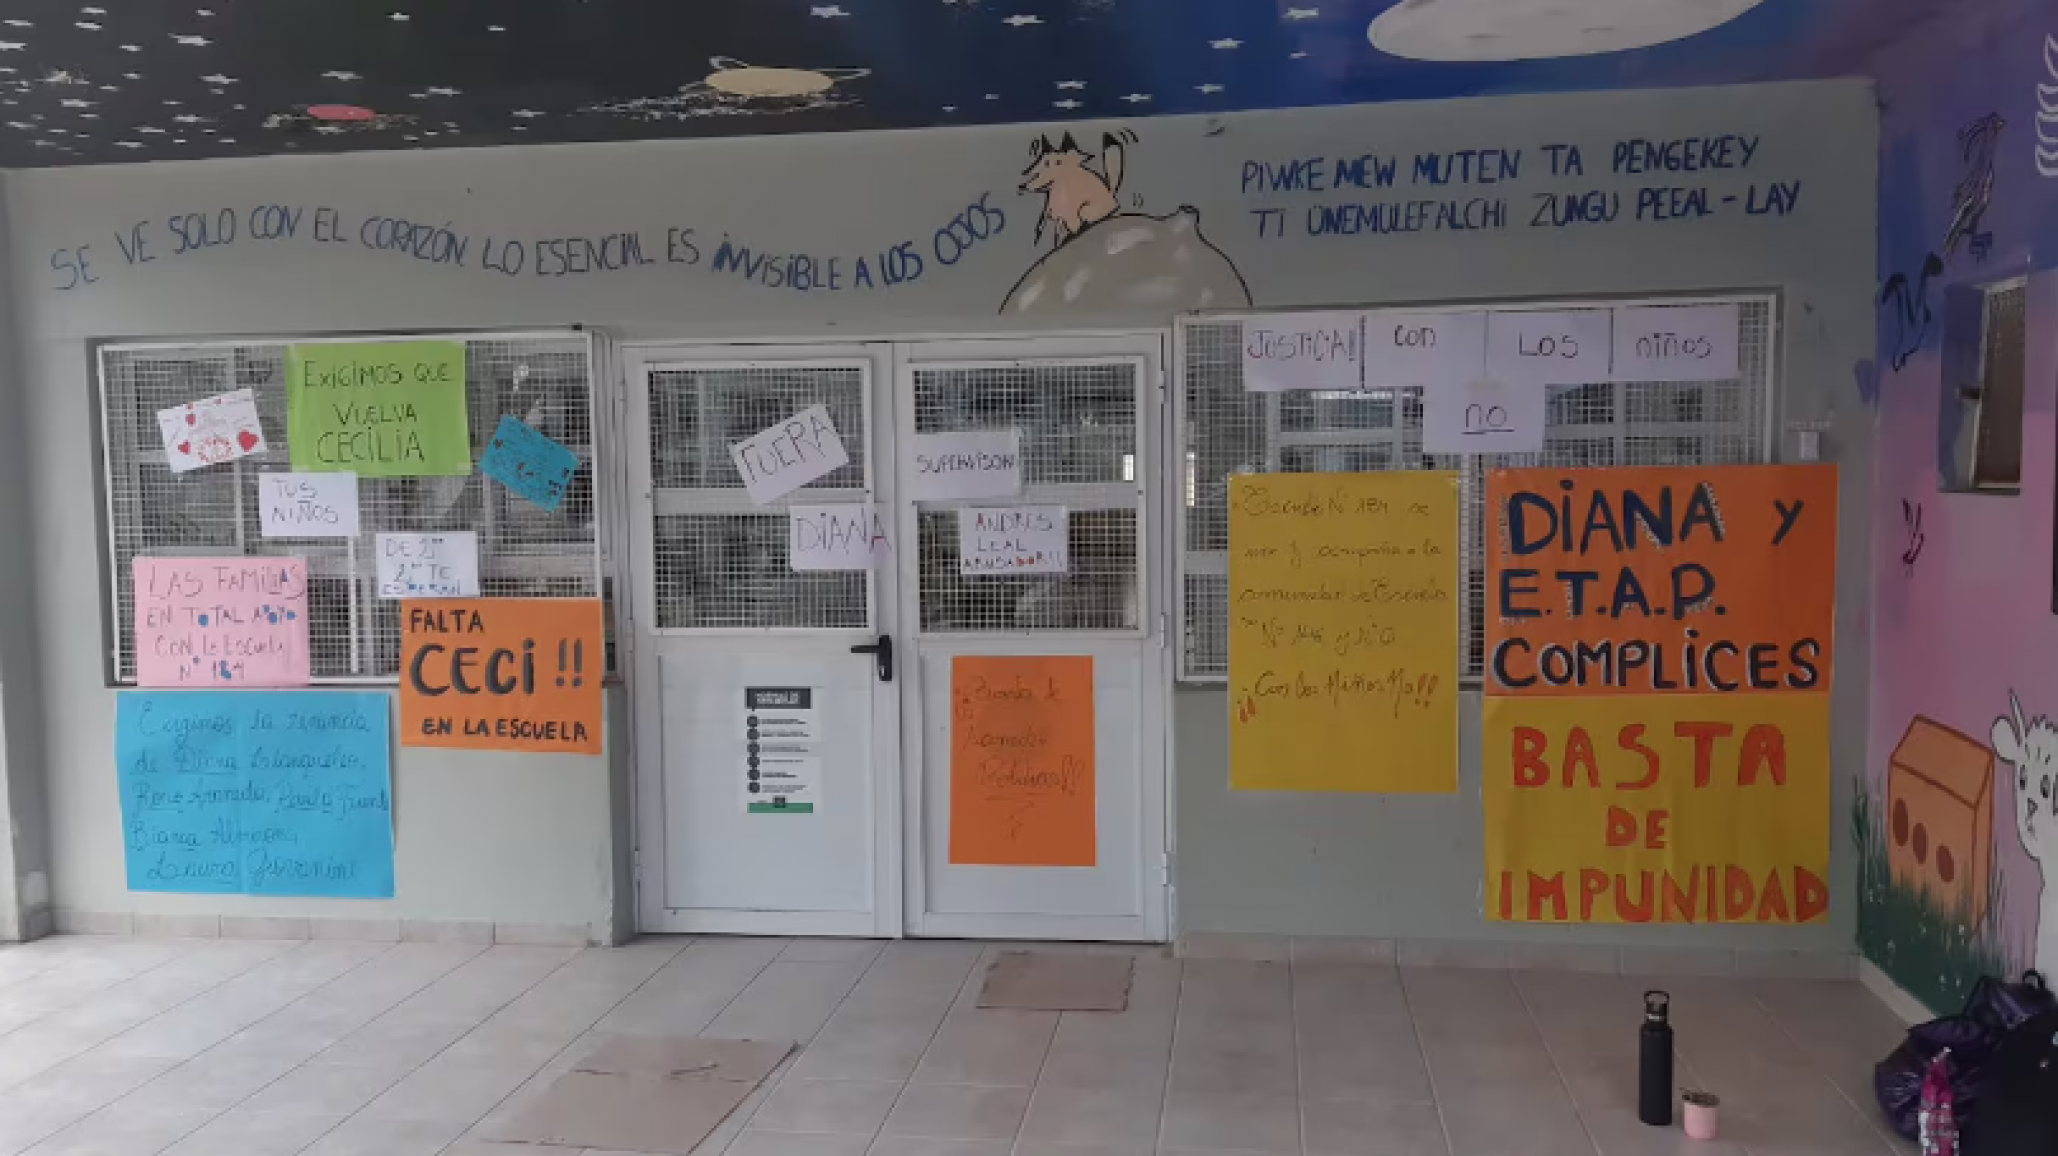 SE VE SOLO CON EL CORAZÓN. LO ESENCIAL ES iNViSiBLE A LOS OJOS
PIWKE MEW MUTEN TA PENGEKEY
TI ÜNEMULEFALCHI ZUNGU PEEAL - LAY
EXIGIMOS QUE
VUELVA
CECILIA
TUS
NIÑOS
DE 2º
ESPERAN
LAS FAMILIAS
EN TOTAL APOYO
CON LA ESCUELA
Nº 184
FALTA
CECI !!
EN LA ESCUELA
Exigimos la renuncia
de Diana
Bianca
Laura
FUERA
DIANA
SUPERVISOR
ANDRES
LEAL
ABUSADOR!!
Basta de
Politicas!!
JUSTICIA! con LOS niños
no
Escuela Nº 184 se
une y acompaña a la
comunidad de Escuela
Con los Niños No!!
DiANA Y
E.T.A.P.
COMPLiCES
BASTA
DE
IMPUNIDAD